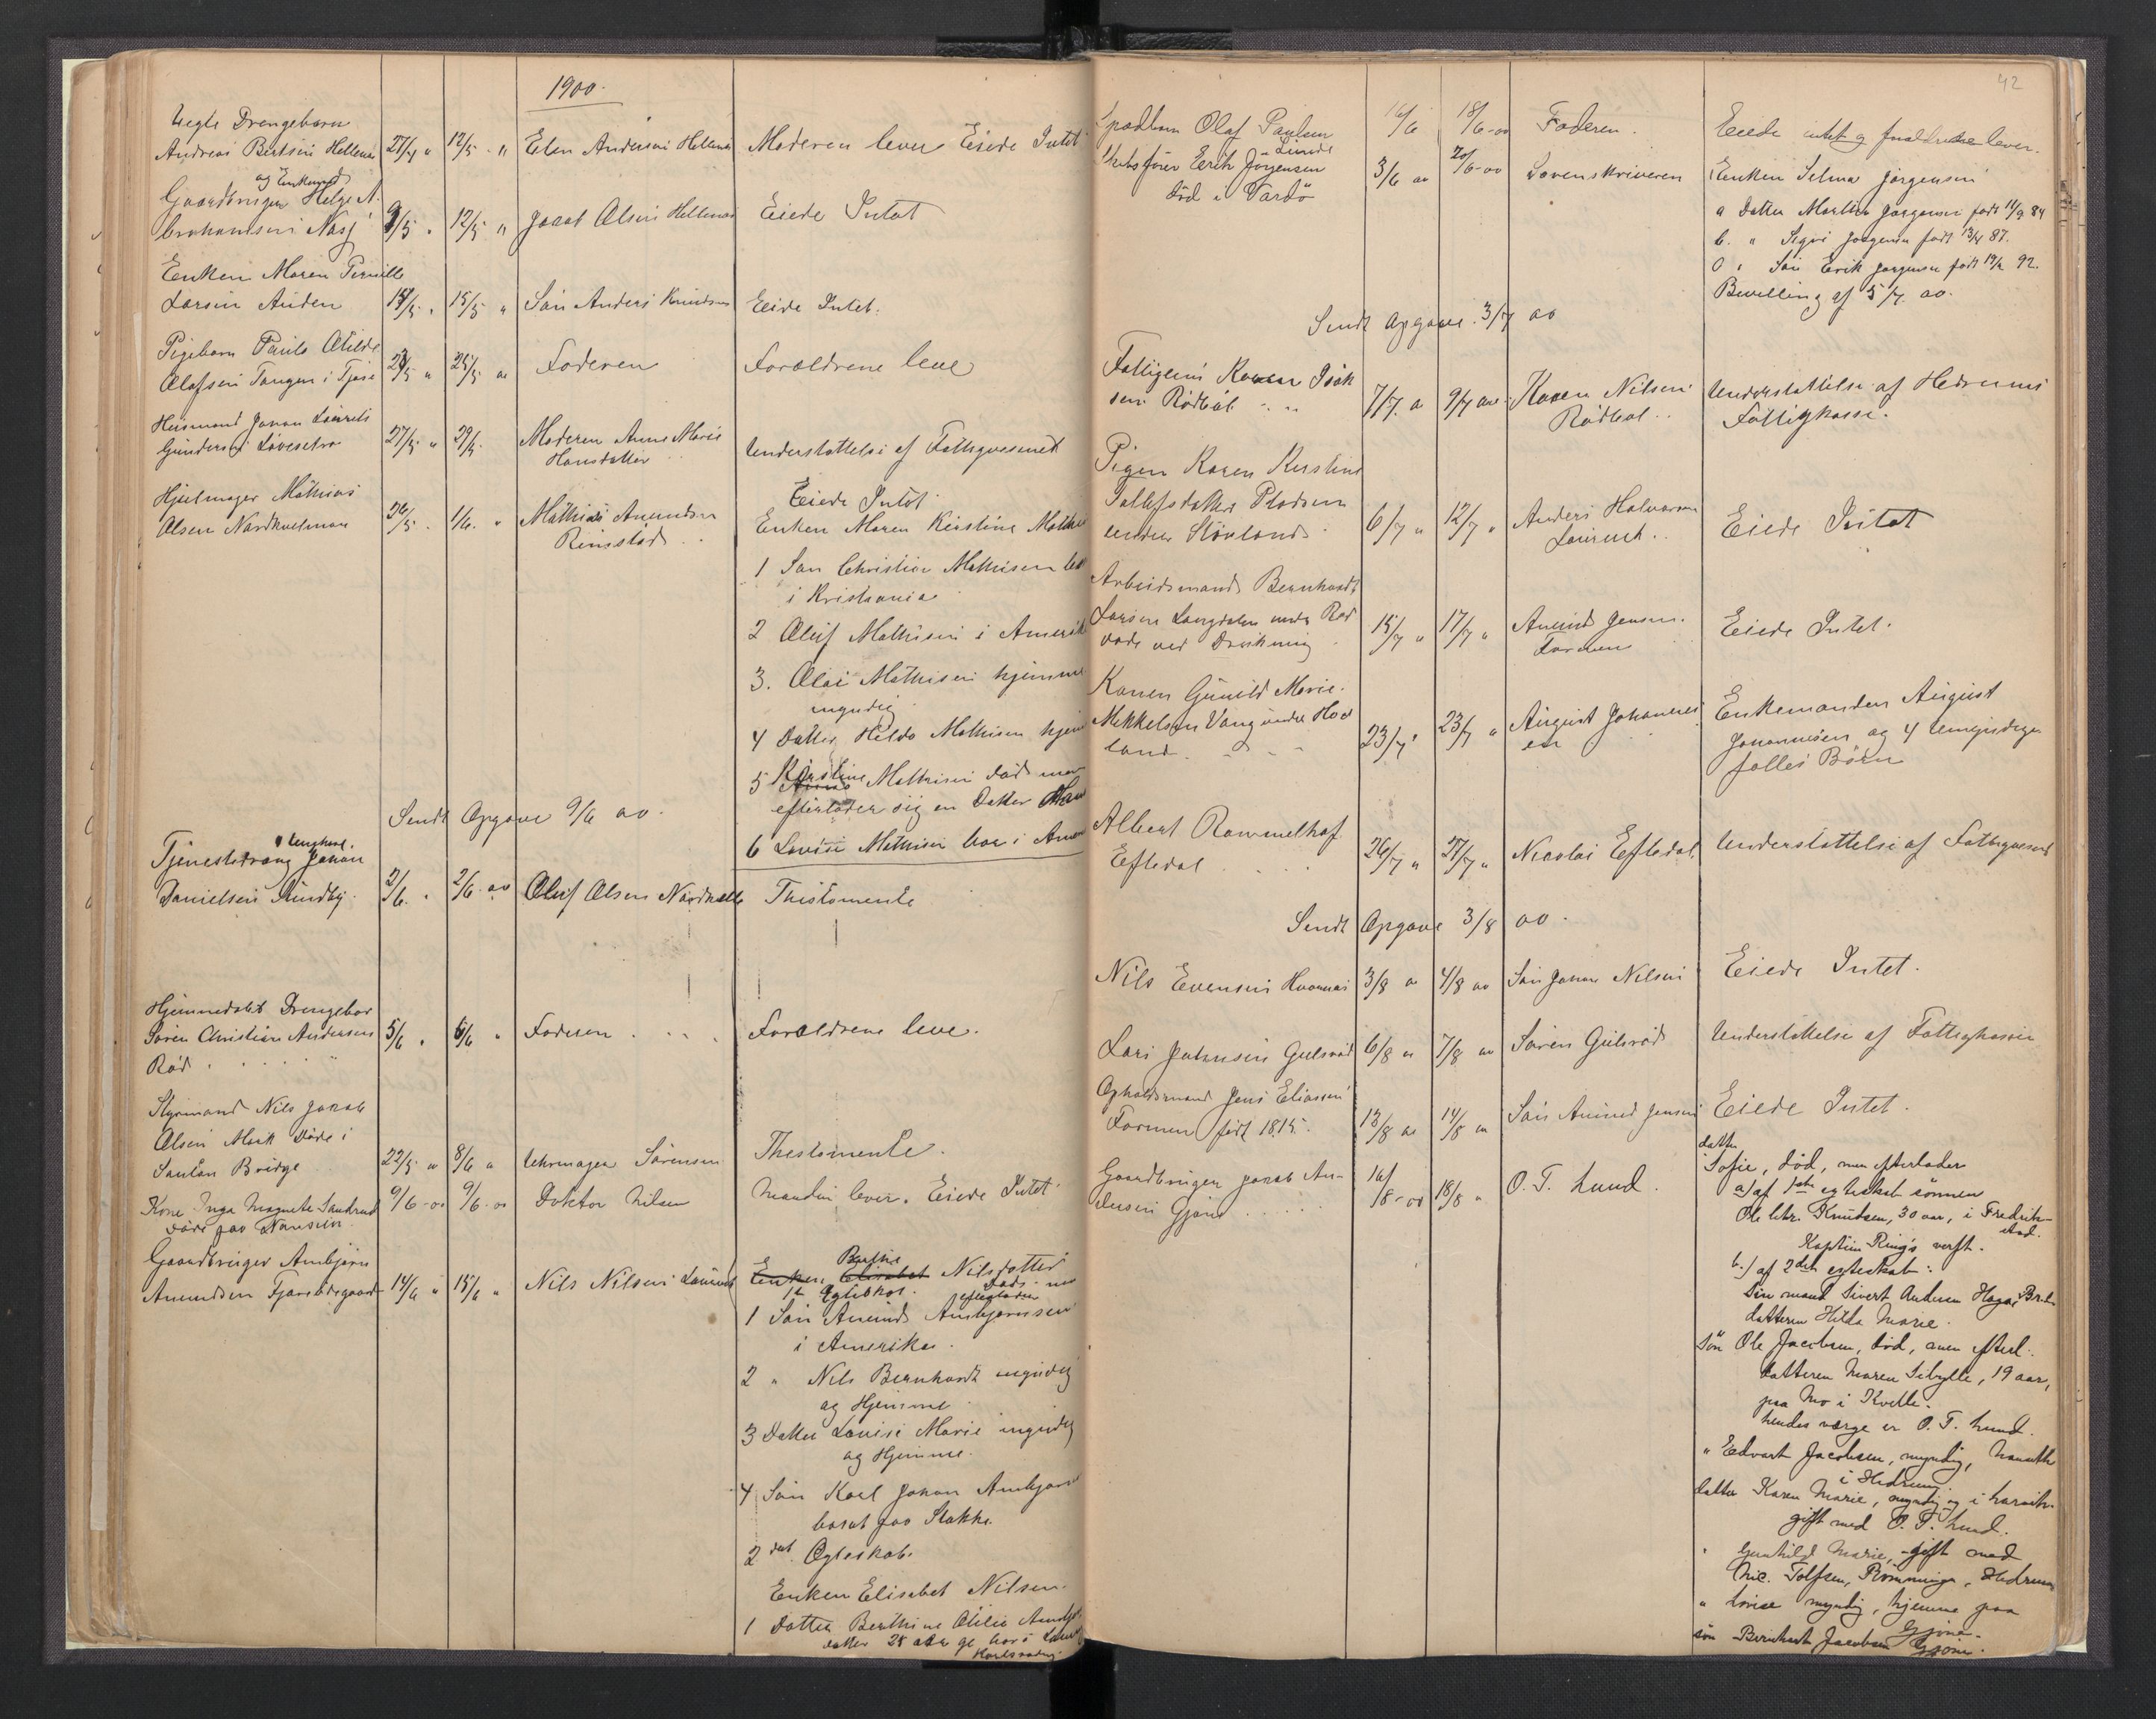 1900.
Uegte Drengebarn
Andreas Bertsen Hellenæs 27/4 " 12/5 " Elen Andersen Hellenæs Moderen lever Eiede Intet
og Enkemand
Gaardbruger Helge A.
brahamsen Næs 9/5 " 12/5 " Jacob Olsen Hellenæs Eiede Intet
Enken Maren Pernille
Larsen Auden 15/5 " 15/5 " Søn Anders Knudsen Eiede Intet.
Pigebarn Paula Otilde
Olafsen Tangen i Tjose 23/5 " 25/5 oo Faderen Forældrene leve
Huusmand Johan Laurits
Gundersen Løvesetra 27/5 " 29/5 Moderen Anne Marie Understøttelse af Fattigvæsenet
Hansdatter
Hjulmager Mathias Eiede Intet.
Olsen Nordkvelmen 26/5 " 1/6 " Mathias Amundsen Enken Maren Kirstine Mathis
Rimstad
1 Søn Christian Mathisen bor
i Kristiania
2 Oluf Mathisen i Amerik
3. Olai Mathisen hjemme
myndig
4 Datter Hilda Mathisen hjem
5 Kirstine Mathisen død men
efterlader sig en Datter
6 Lovise Mathisen bor i Amer
Sendt Opgave 9/6 oo.
Ungkarl.
Tjenestedreng Johan
Danielsen Sundby 2/6 " 2/6 oo Oluf Olsen Thestamente
Hjemmedøbt Drengebar
Søren Christian Andersen 5/6 " 6/6 " Faderen Forældrene leve.
Rød
Styrmand Nils Jakob
Olsen Mørk døde i
Bridge 22/5 " 8/6 " Uhrmager Sørensen Thestamente.
Kone Inga Magnete Sandrud 9/6-oo 9/6-oo Doktor Nilsen Manden lever. Eiede Intet
døde paa Nansen
Gaardbruger Anbjørn
Amundsen Fjærebdegaard 14/6 " 15/6 " Nils Nilsen Enken Elisabet Berthe Nilsdatter
1te Ægteskab. død men efterlader
1 Søn Amund Anbjørnsen
i Amerika.
2 " Nils Bernhardt myndig
og Hjemme
3 Datter Lovise Marie myndig
og Hjemme.
4 Søn Karl Johan Anbjørn
bosat paa Stokke
2det Ægteskab
Enken Elisabet Nilsen.
1 Datter Berthine Otilie
datter 25 aar
42
Spædbarn Olaf Paulsen 16/6 18/6-oo Faderen. Eiede intet og forældrene lever.
Linde
Erik Jørgensen 3/6 oo 20/6-oo Sorenskriveren Enken Selma Jørgensen
død i Vardö
a Datter Martha Jørgensen født 11/9 84
b. " Sigri Jørgensen født 13/4 87.
c " Søn Erik Jørgensen født 19/2 92.
Bevilling af 5/7 oo.
Sendt Opgave 3/7 oo
Fattiglem Karen Isak
sen Rødbøl 7/7 o 9/7 oo Karen Nilsen Understøttelse af Hedrums
Rødbøl Fattigkasse.
Pigen Karen Kirstine
Tollefsdatter Pladsen
under Skovland 6/7 " 12/7 " Anders Halvorsen Eiede Intet
Arbeidsmand Bernhardt
Larsen Langdalen under Rød 15/7 " 17/7 " Amund Jensen Eiede Intet.
døde ved Drukning Farmen
Konen Gunild Marie
Mekkelsen Vang under Hov
land 23/7 " 23/7 " August Johannes Enkemanden August
en Johannesen og 4 Umyndige
fælles Børn
Albert Rommelhof
Eftedal 26/7 " 27/7 " Nicolai Eftedal Understøttelse af Fattigvæsenet
Sendt Opgave 3/8 oo.
Nils Evensen Hvaanæs 3/8 oo 4/8 oo Søn Johan Nilsen Eiede Intet.
Lars Johansen Gulsrød 6/8 oo 7/8 oo Søren Gulsrød Understøttelse af Fattigkassen
Opholdsmand Jens Eliassen
Farmen født 1815. 13/8 oo 14/8 oo Søn Amund Jensen Eiede Intet.
Gaardbruger Jakob An-
dersen Gjøne 16/8-oo 18/8 " O. T. Lund.
datter
Sofie, død, men efterlader
a) af 1ste egteskab sønnen
Ole Chr. Knudsen, 30 aar, i Fredrik-
stad.
Kaptein Ring's verft.
b.) af 2det egteskab:
Sin mand Sivert Andersen
datteren Hilda Marie.
søn Ole Jacobsen, død, men efterl.
datteren Maren Sibylle, 19 aar,
paa Mo i Kvelle.
hendes værge er O. T. Lund.
" Edvart Jacobsen, myndig,
i Hedrum.
datter Karen Marie, myndig og i Larvik.
gift med O. T. Lund.
" Gunhild Marie, gift med
Nic. Tolfsen, Rømminge, Hedrum
" Lovise myndig, hjemme paa
Gjøne.
søn Bernhart Jacobsen Gjøne.